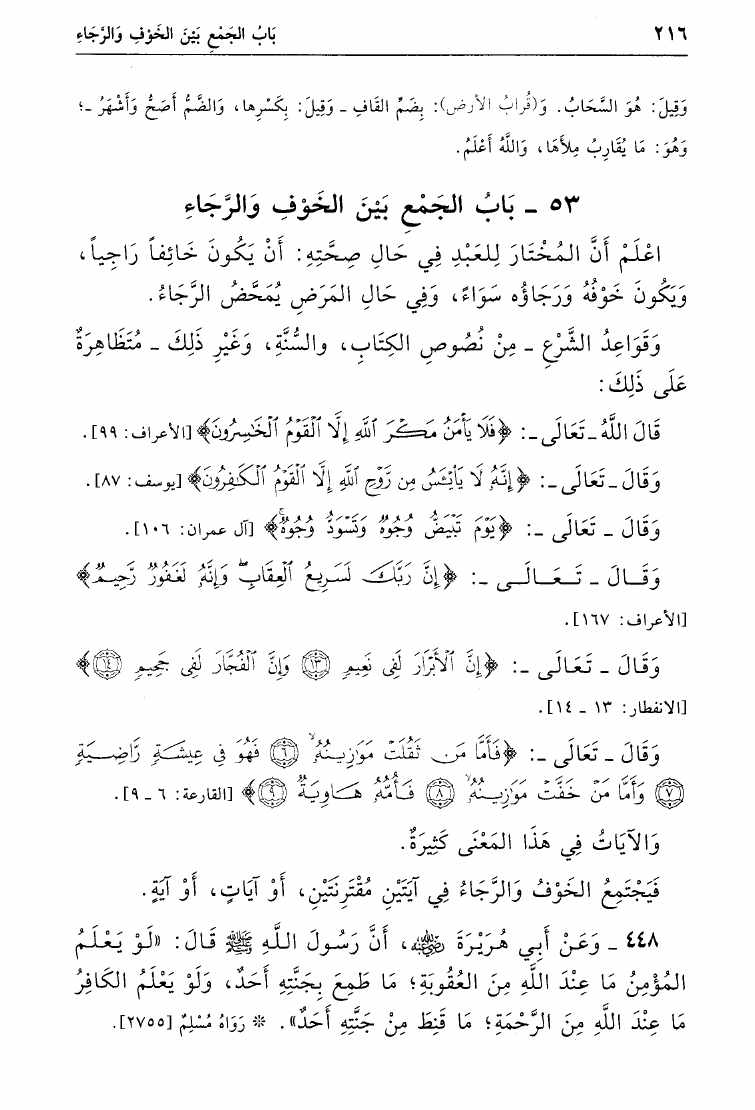 ٢١٦ بَابُ الجَمْعِ بَيْنَ الخَوْفِ وَالرَّجَاءِ
وَقِيلَ: هُوَ السَّحَابُ. وَ(قُرابُ الأرض): بِضَمِّ القَافِ ـ وَقِيلَ: بِكَسْرِها، وَالضَّمُّ أَصَحُّ وَأَشْهَرُ ـ؛
وَهُوَ: مَا يُقَارِبُ مِلأَهَا، وَاللَّهُ أَعْلَمُ.
٥٣ ـ بَابُ الجَمْعِ بَيْنَ الخَوْفِ وَالرَّجَاءِ
اعْلَمْ أَنَّ المُخْتَارَ لِلعَبْدِ فِي حَالِ صِحَّتِهِ: أَنْ يَكُونَ خَائِفاً رَاجِياً،
وَيَكُونَ خَوْفُهُ وَرَجَاؤُه سَوَاءً، وَفِي حَالِ المَرَضِ يُمَحَّضُ الرَّجَاءُ.
وَقَوَاعِدُ الشَّرْعِ ـ مِنْ نُصُوصِ الكِتَابِ، والسُّنَّةِ، وَغَيْرِ ذَلِكَ ـ مُتَظَاهِرَةٌ
عَلَى ذَلِكَ:
قَالَ اللَّهُ ـ تَعَالَى ـ: ﴿فَلَا يَأْمَنُ مَكْرَ ٱللَّهِ إِلَّا ٱلْقَوْمُ ٱلْخَٰسِرُونَ﴾ [الأعراف: ٩٩].
وَقَالَ ـ تَعَالَى ـ: ﴿إِنَّهُۥ لَا يَاْيْـَٔسُ مِن رَّوْحِ ٱللَّهِ إِلَّا ٱلْقَوْمُ ٱلْكَٰفِرُونَ﴾ [يوسف: ٨٧].
وَقَالَ ـ تَعَالَى ـ: ﴿يَوْمَ تَبْيَضُّ وُجُوهٌ وَتَسْوَدُّ وُجُوهٌ ۚ﴾ [آل عمران: ١٠٦].
وَقَـالَ ـ تَـعَـالَـى ـ: ﴿إِنَّ رَبَّكَ لَسَرِيعُ ٱلْعِقَابِ ۖ وَإِنَّهُۥ لَغَفُورٌ رَّحِيمٌ﴾
[الأعراف: ١٦٧].
وَقَالَ ـ تَعَالَى ـ: ﴿إِنَّ ٱلْأَبْرَارَ لَفِى نَعِيمٍ ١٣ وَإِنَّ ٱلْفُجَّارَ لَفِى جَحِيمٍ ١٤﴾
[الانفطار: ١٣ ـ ١٤].
وَقَالَ ـ تَعَالَى ـ: ﴿فَأَمَّا مَن ثَقُلَتْ مَوَٰزِينُهُۥ ٦ فَهُوَ فِى عِيشَةٍ رَّاضِيَةٍ
٧ وَأَمَّا مَنْ خَفَّتْ مَوَٰزِينُهُۥ ٨ فَأُمُّهُۥ هَاوِيَةٌ ٩﴾ [القارعة: ٦ ـ ٩].
وَالآيَاتُ فِي هَذَا المَعْنَى كَثِيرَةٌ.
فَيَجْتَمِعُ الخَوْفُ وَالرَّجَاءُ فِي آيَتَيْنِ مُقْتَرِنَتَيْنِ، أَوْ آيَاتٍ، أَوْ آيَةٍ.
٤٤٨ ـ وَعَنْ أَبِي هُرَيْرَةَ رضي الله عنه، أَنَّ رَسُولَ اللَّهِ ﷺ قَالَ: «لَوْ يَعْلَمُ
المُؤْمِنُ مَا عِنْدَ اللَّهِ مِنَ العُقُوبَةِ؛ مَا طَمِعَ بِجَنَّتِهِ أَحَدٌ، وَلَوْ يَعْلَمُ الكَافِرُ
مَا عِنْدَ اللَّهِ مِنَ الرَّحْمَةِ؛ مَا قَنِطَ مِنْ جَنَّتِهِ أَحَدٌ». * رَوَاهُ مُسْلِمٌ [٢٧٥٥].